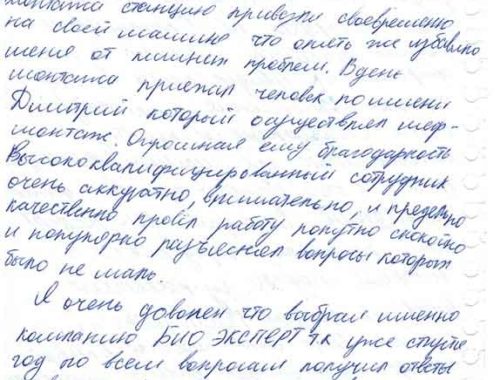 монтажа станцию привезли своевременно
на своей машине что опять же избавило
меня от лишних проблем. В день
монтажа приехал человек по имени
Дмитрий который осуществлял шеф-
монтаж. Огромная ему благодарность
Высококвалифицированный сотрудник
очень аккуратно, внимательно, и предельно
качественно провёл работу попутно спокойно
и популярно разъяснял вопросы которых
было не мало
Я очень доволен что выбрал именно
компанию БИО ЭКСПЕРТ т.к уже спустя
год по всем вопросам получил ответы